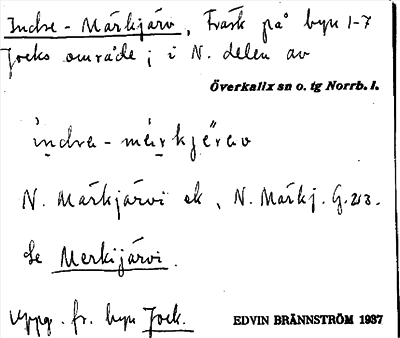 Indre - Märkjärv, Träsk på byn 1-7
Jocks område; i N. delen av
Överkalix sn o. tg Norrb. l.
ìndra - mærkjęrav
N. Märkjärvi ek, N. Märkj. G. 213.
Se Merkijärvi.
Uppg. fr. byn Jock.
EDVIN BRÄNNSTRÖM 1937